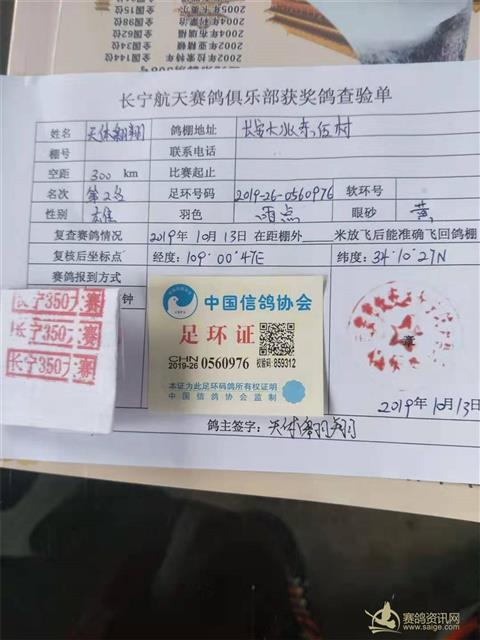 全国144位
2002年
全国34位
全国62位
2004年
全国98位
2005年
长宁航天赛鸽俱乐部获奖鸽查验单
姓名 天休翱翔 鸽棚地址
棚号 联系电话
空距 300 km 比赛起止
名次 第2名 足环号码 2019-26-0560976 软环号
性别 羽色 雨点 眼砂 黄
复查赛鸽情况 2019年10月13日在距棚外 米放飞后能准确飞回鸽棚
复核后坐标点 经度：109°00′47E 纬度：34°10′27N
赛鸽报到方式
钟
长宁350大赛
长宁350大赛
长宁350大赛
中国信鸽协会
足环证
CHN
2019-26 0560976 校验码:859312
本证为此足环码鸽所有权证明
中国信鸽协会监制
章
2019年10月13日
鸽主签字：天休翱翔
赛鸽资讯网
www.saige.com